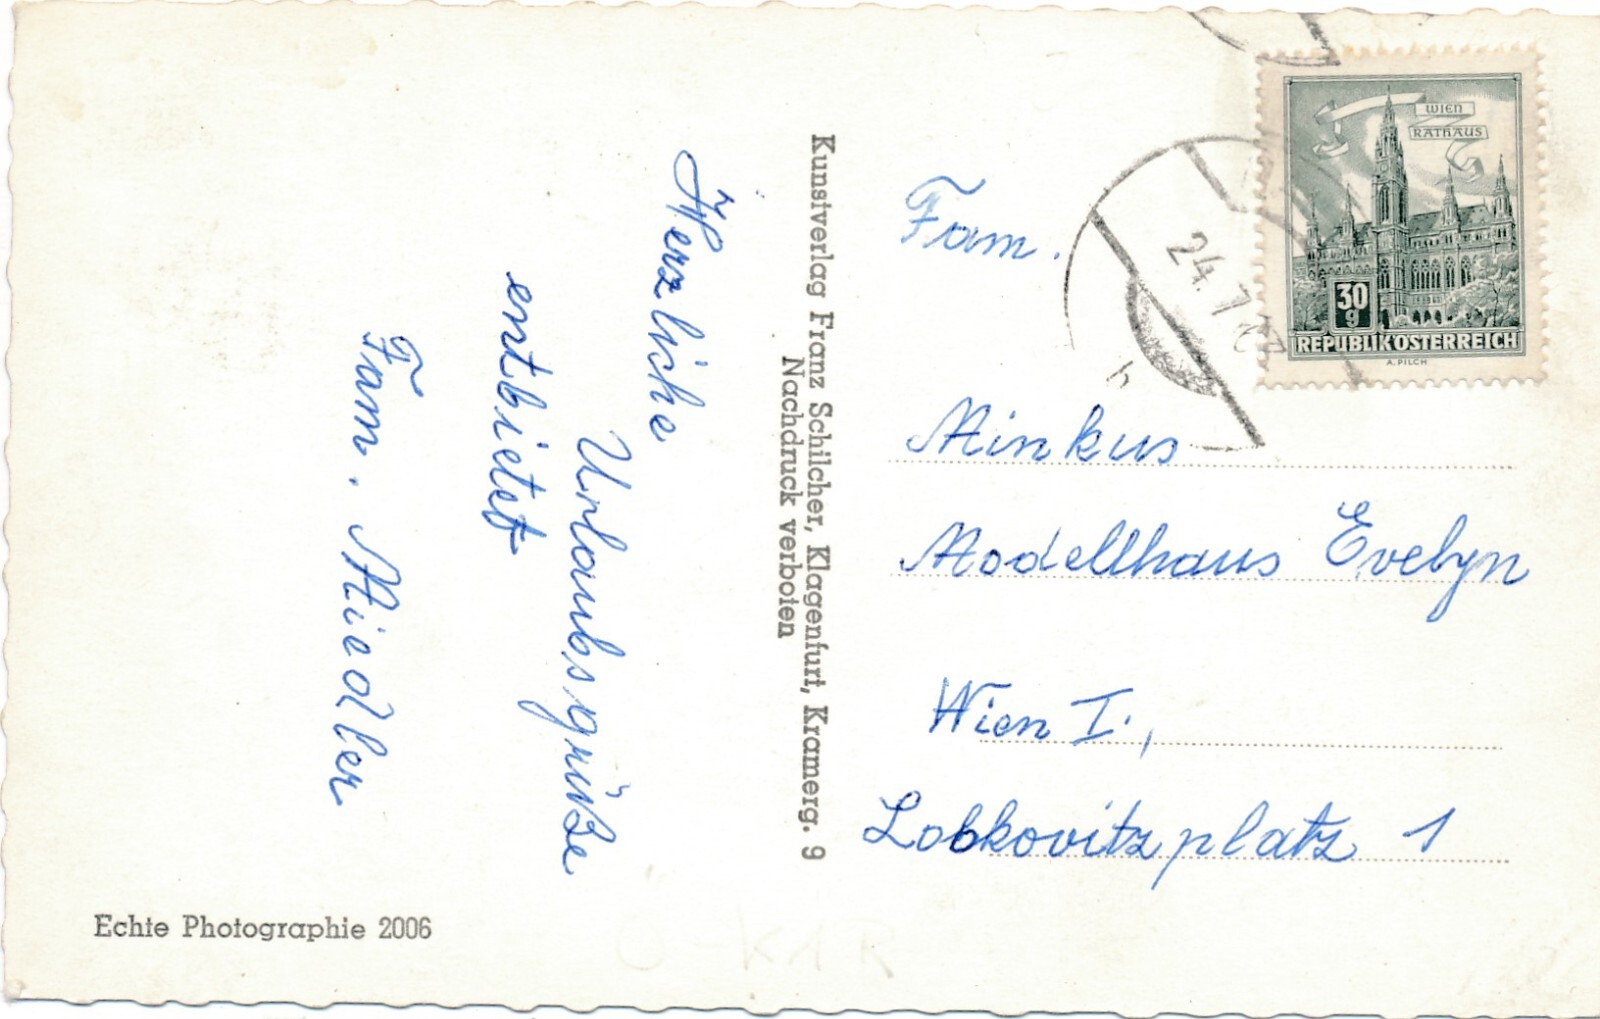 Herzliche
Urlaubsgrüße
entbietet
Fam. Miedler
Echte Photographie 2006
Kunstverlag Franz Schilcher, Klagenfurt, Kramerg. 9
Nachdruck verboten
24.7
WIEN
RATHAUS
30
g
REPUBLIK ÖSTERREICH
A. PILCH
Fam.
Minkus
Modellhaus Evelyn
Wien I.,
Lobkovitzplatz 1